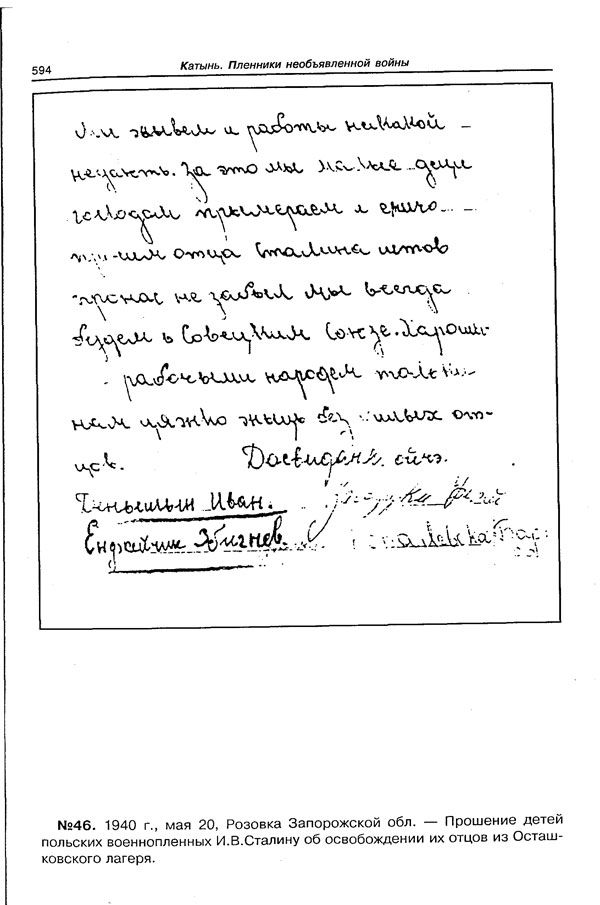 594
Катынь. Пленники необъявленной войны
зывем и работы никакой
недають. За это мы малые деци
голодам прымераем и
отца Сталина штоб
пронас не забыл мы всегда
будем в Совецким Союзе. Хароши
рабочыми народем
нам цяжко жыць без милых от-
цов. Досвидан. ойчэ.
Иван.
Енджейчик Збигнев.
№46. 1940 г., мая 20, Розовка Запорожской обл. — Прошение детей
польских военнопленных И.В.Сталину об освобождении их отцов из Осташ-
ковского лагеря.